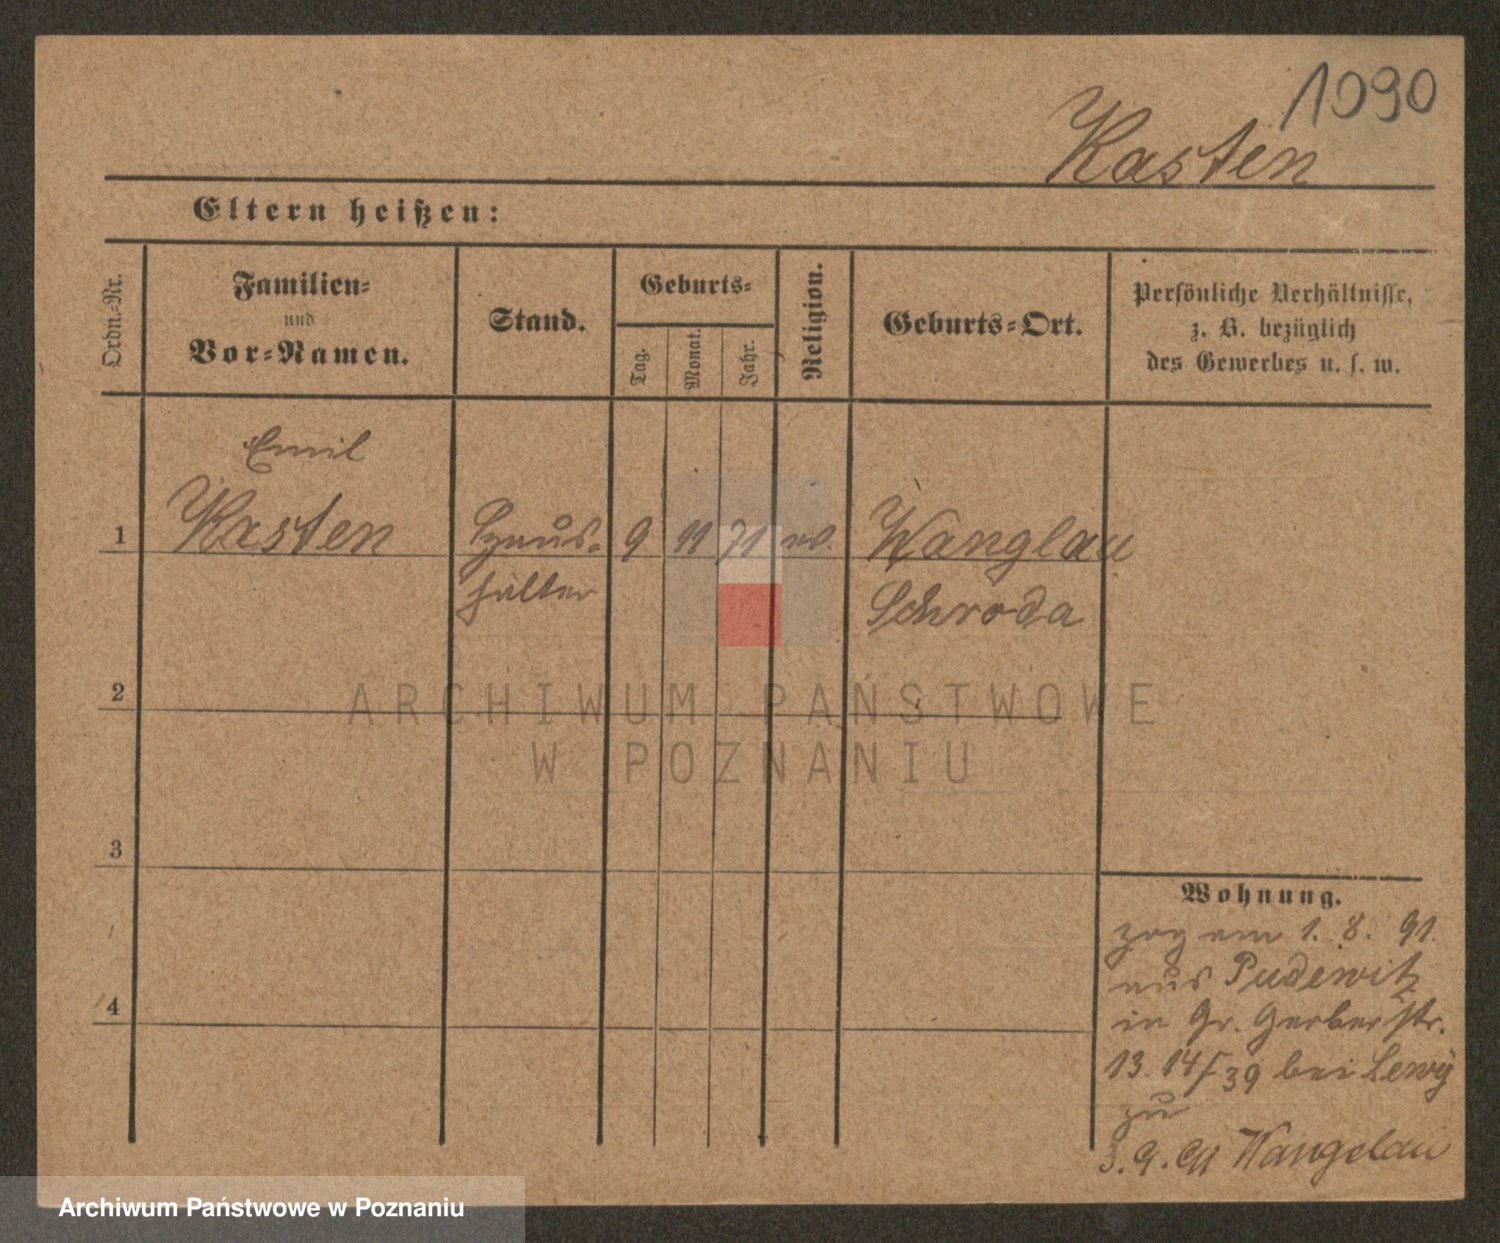 1090
Kasten
Eltern heißen:
Ordn.-Nr.
Familien-
und
Vor-Namen.
Stand.
Geburts-
Tag.
Monat.
Jahr.
Religion.
Geburts-Ort.
Persönliche Verhältnisse,
z. B. bezüglich
des Gewerbes u. s. w.
Emil
1 Kasten Haus- 9 11 71 ev. Wanglau
hälter Schroda
2
ARCHIWUM PAŃSTWOWE
W POZNANIU
3
Wohnung.
zog am 1. 8. 91.
aus Pudewitz
4
in Gr. Gerberstr.
13. 14/39 bei Lewy
zu
3. 9. 91 Wangelau
Archiwum Państwowe w Poznaniu